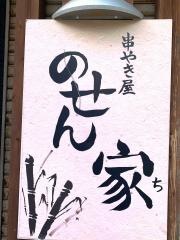 串やき屋
のせん
家
ち